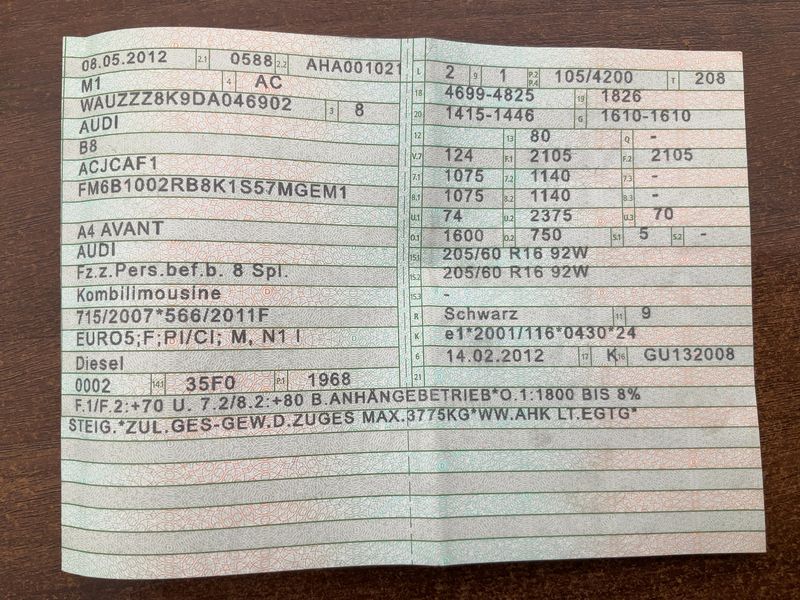 08.05.2012 2.1 0588 2.2 AHA001021
M1 4 AC
WAUZZZ8K9DA046902 3 8
AUDI
B8
ACJCAF1
FM6B1002RB8K1S57MGEM1
A4 AVANT
AUDI
Fz.z.Pers.bef.b. 8 Spl.
Kombilimousine
715/2007*566/2011F
EURO5;F;PI/CI; M, N1 I
Diesel
0002 14.1 35F0 P.1 1968
L 2 9 1 P.2 P.4 105/4200 T 208
18 4699-4825 19 1826
20 1415-1446 G 1610-1610
12 13 80 Q -
V.7 124 F.1 2105 F.2 2105
7.1 1075 7.2 1140 7.3 -
8.1 1075 8.2 1140 8.3 -
U.1 74 U.2 2375 U.3 70
O.1 1600 O.2 750 S.1 5 S.2 -
15.1 205/60 R16 92W
15.2 205/60 R16 92W
15.3 -
R Schwarz 11 9
K e1*2001/116*0430*24
6 14.02.2012 17 K 16 GU132008
21
F.1/F.2:+70 U. 7.2/8.2:+80 B.ANHÄNGEBETRIEB*O.1:1800 BIS 8%
STEIG.*ZUL.GES-GEW.D.ZUGES MAX.3775KG*WW.AHK LT.EGTG*